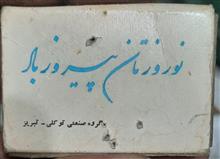 نوروزتان پیروز باد
گروه صنعتی توکلی - تبریز